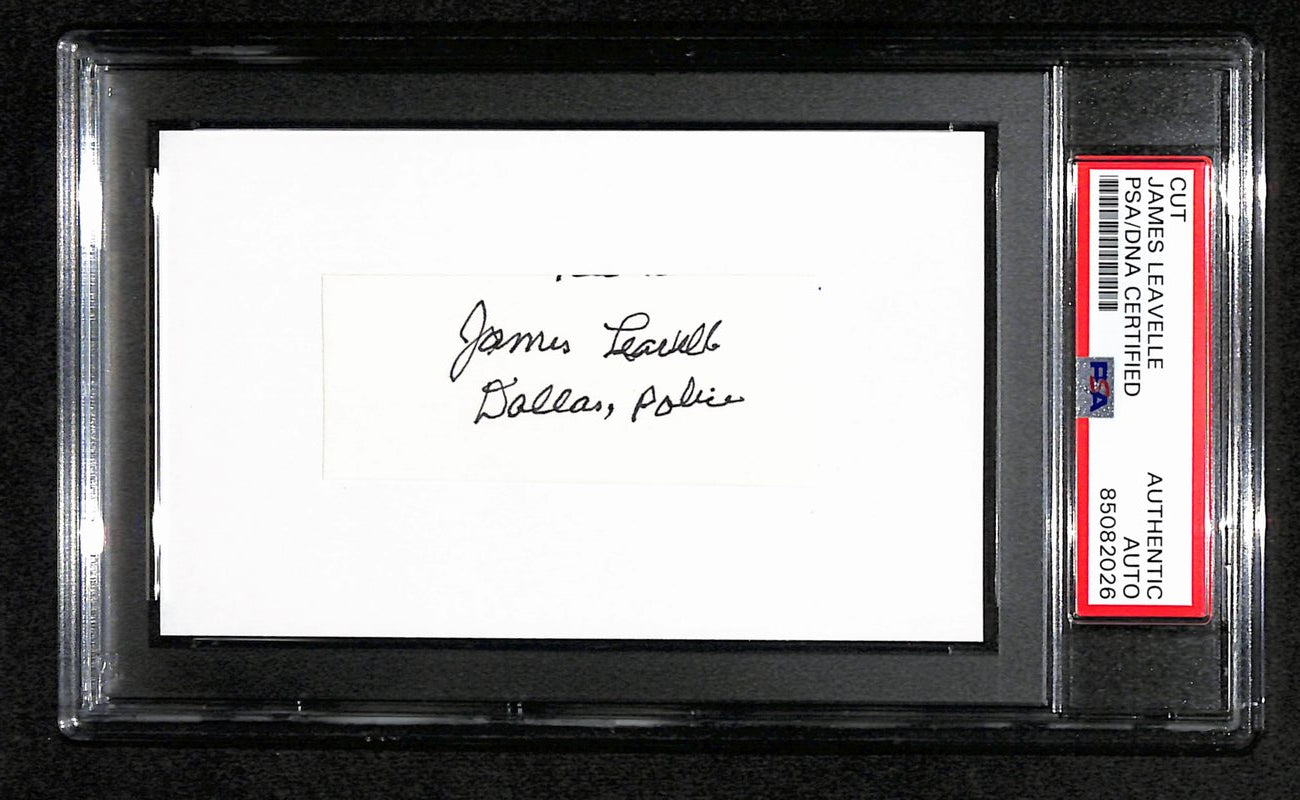 James Leavelle
Dallas, Police
CUT
JAMES LEAVELLE
PSA/DNA CERTIFIED
PSA
AUTHENTIC
AUTO
85082026